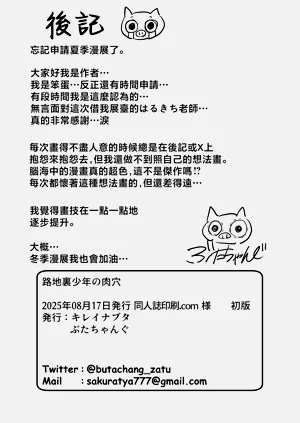 後記
忘記申請夏季漫展了。
大家好我是作者…
我是笨蛋…反正還有時間申請…
有段時間我是這麼認為的…
無言面對這次借我展臺的はるきち老師…
真的非常感謝…淚
每次畫得不盡人意的時候總是在後記或X上
抱怨來抱怨去,但我還做不到照自己的想法畫。
腦海中的漫畫真的超色,這不是傑作嗎!?
每次都懷著這種想法畫的,但還差得遠…
我覺得畫技在一點一點地
逐步提升。
大概…
冬季漫展我也會加油…
ぶたちゃんぐ
路地裏少年の肉穴
2025年08月17日発行 同人誌印刷.com 様 初版
発行：キレイナブタ
ぶたちゃんぐ
Twitter : @butachang_zatu
Mail : sakuratya777@gmail.com